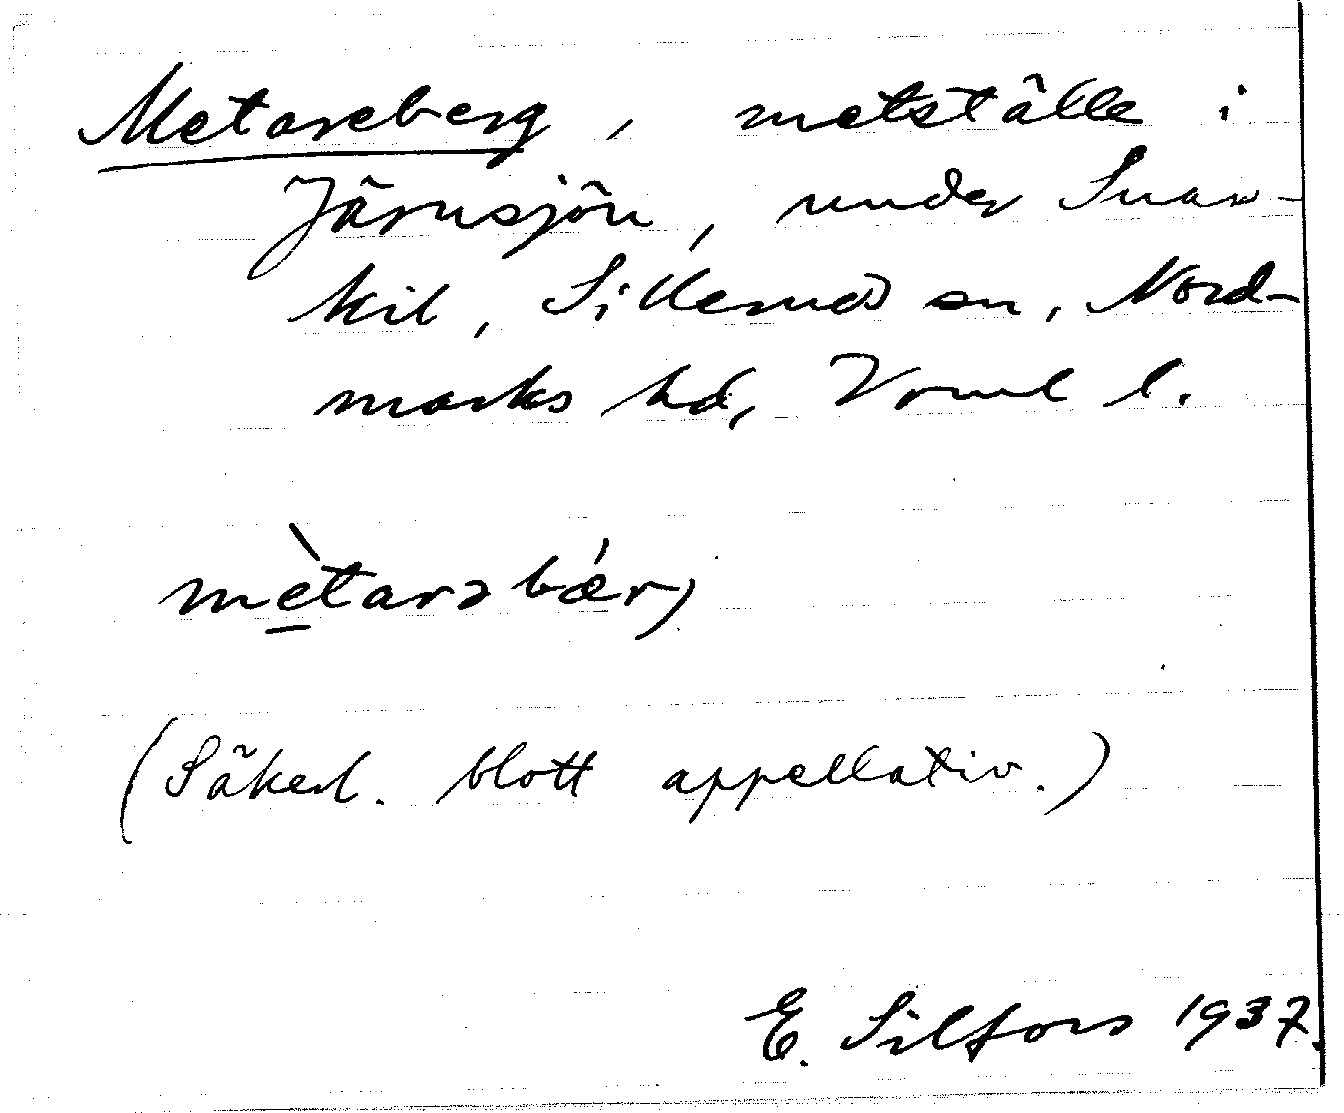 Metareberg, metställe i
Järnsjön, under Svan-
kil, Sillerud sn, Nord-
marks hd, Vrml l.
mètarəbǽrj
(Säkerl. blott appellativ.)
E. Silfors 1937.